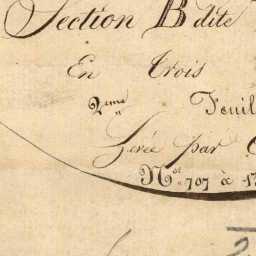 Section B dite
En trois
2eme Feuil
Levée par
Nos. 707 à 1